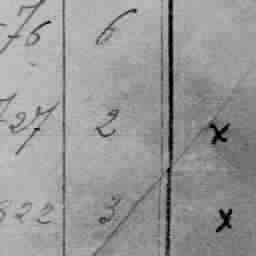 76 6
727 2 x
822 3 x